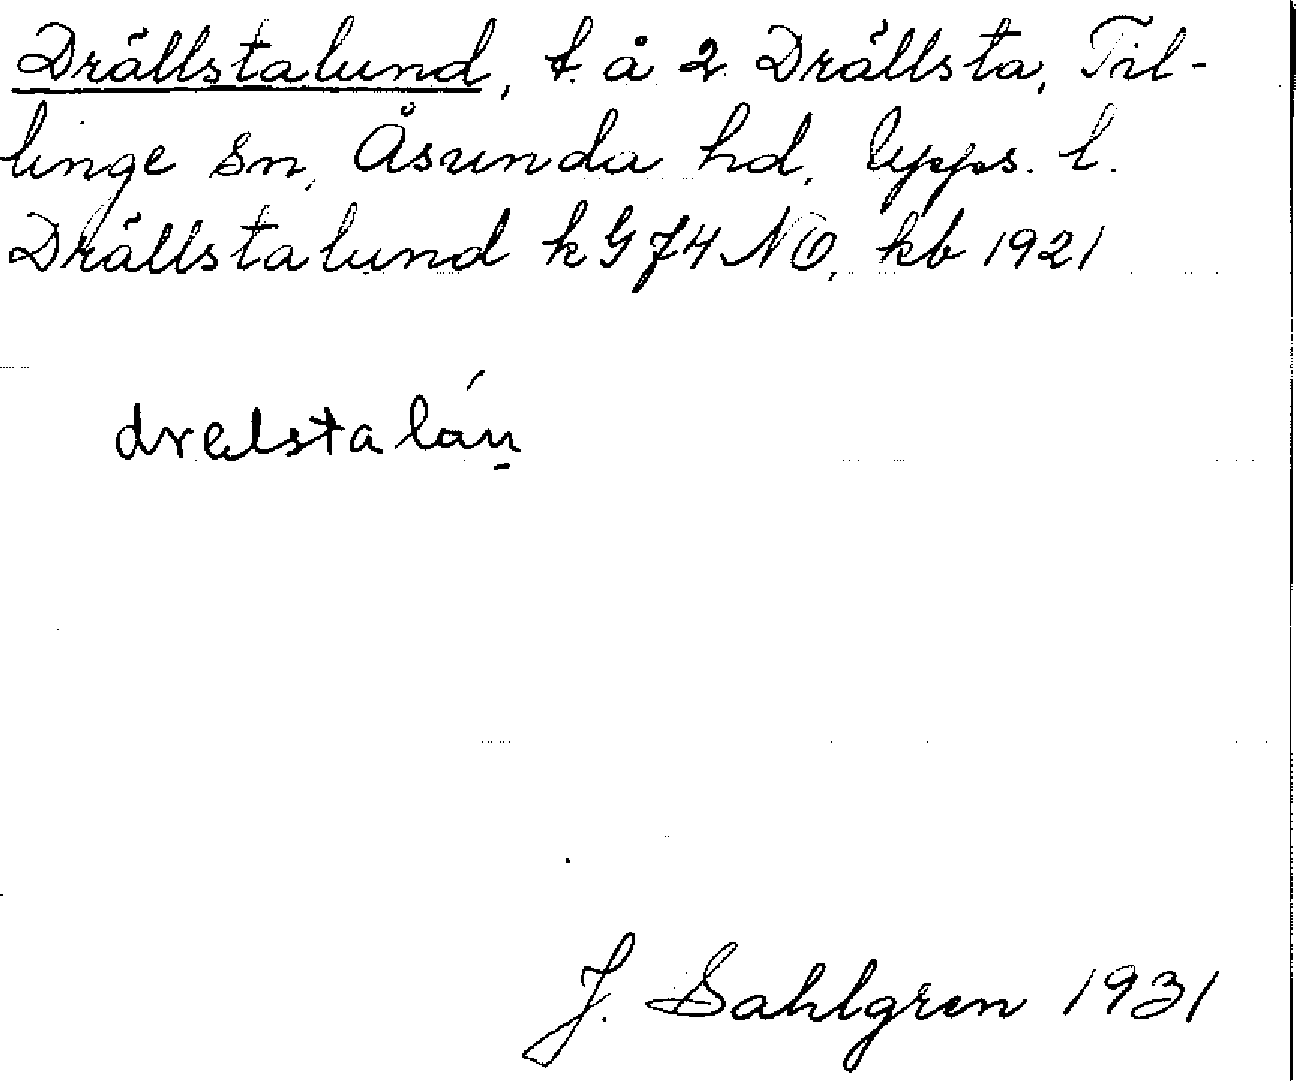 Drällstalund, t. å 2 Drällsta, Til-
linge sn, Åsunda hd, Upps. l.
Drällstalund k G 74 NO, kb 1921
drelstalán̠
J. Sahlgren 1931